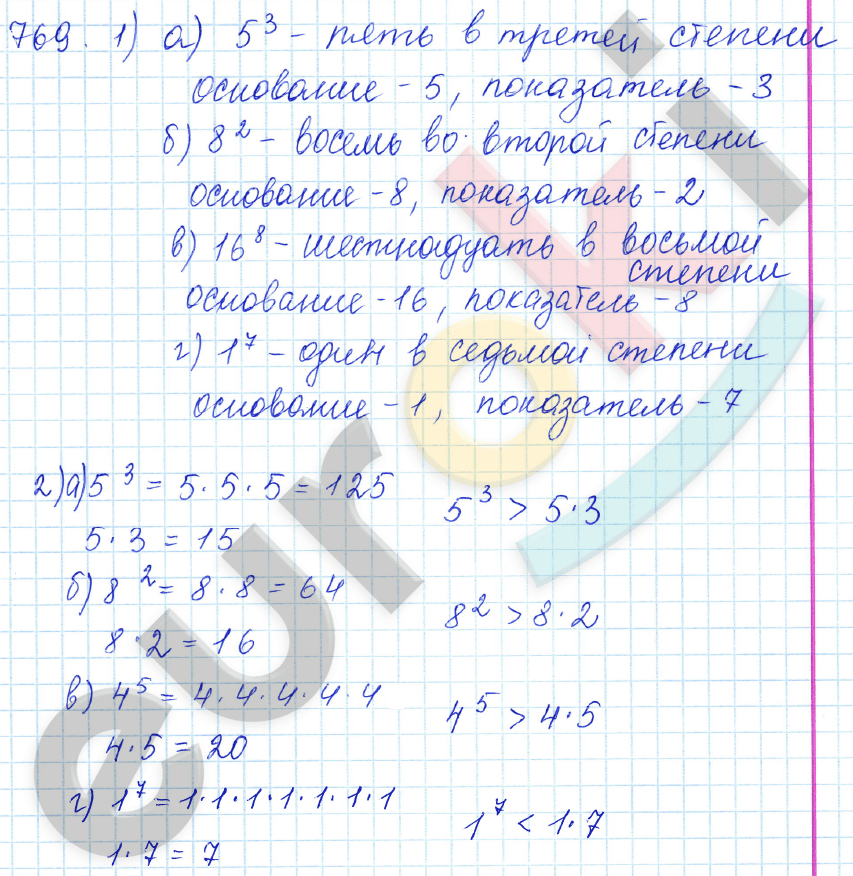 769. 1) а) 5³ - пять в третей степени
основание - 5, показатель - 3
б) 8² - восемь во второй степени
основание - 8, показатель - 2
в) 16⁸ - шестнадцать в восьмой
степени
основание - 16, показатель - 8
г) 1⁷ - один в седьмой степени
основание - 1, показатель - 7
2) а) 5³ = 5·5·5 = 125
5³ > 5·3
5·3 = 15
б) 8² = 8·8 = 64
8² > 8·2
8·2 = 16
в) 4⁵ = 4·4·4·4·4
4⁵ > 4·5
4·5 = 20
г) 1⁷ = 1·1·1·1·1·1·1
1⁷ < 1·7
1·7 = 7
euroki